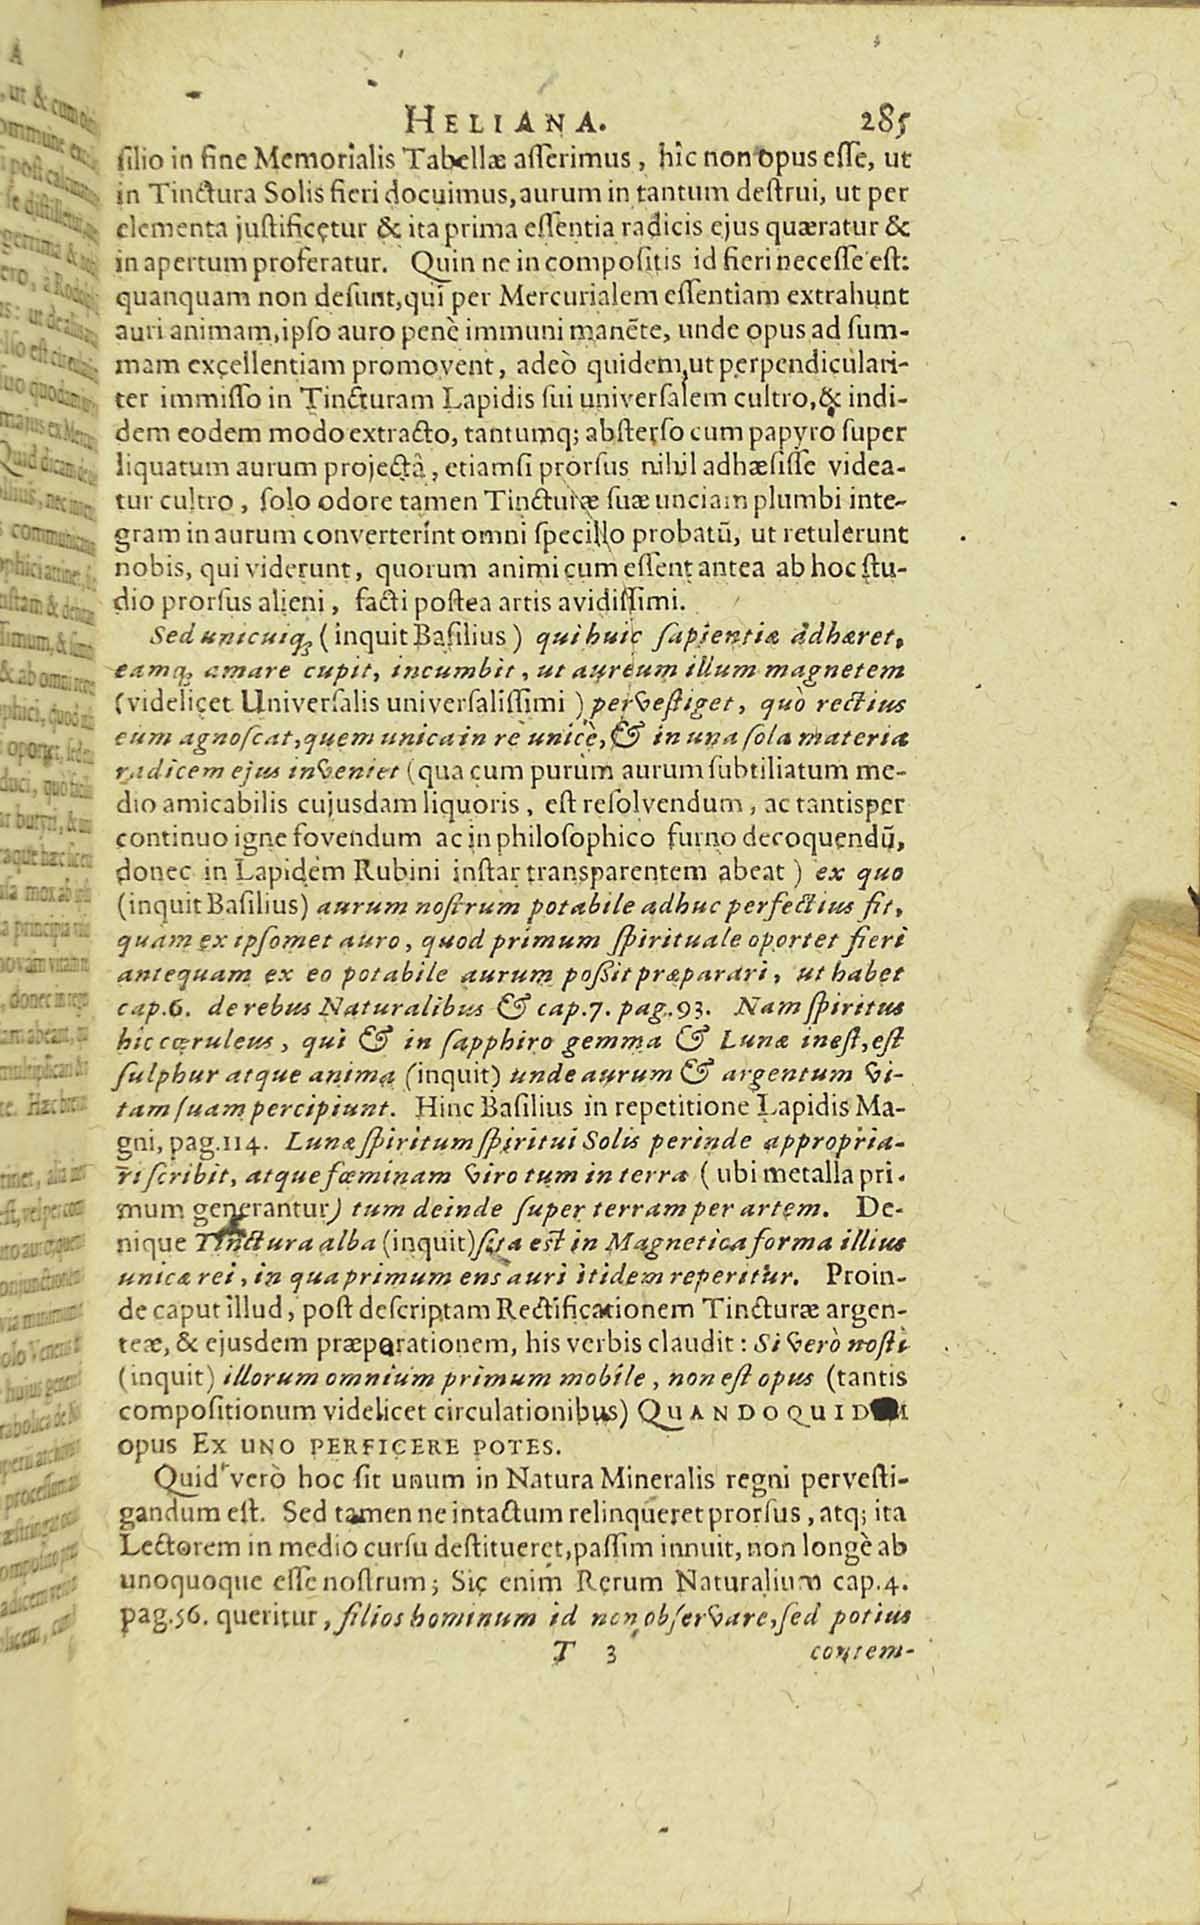 HELIANA. 285
ſilio in fine Memorialis Tabellæ aſſerimus, hîc non opus eſſe, ut
in Tinctura Solis fieri docuimus, aurum in tantum deſtrui, ut per
elementa juſtificetur & ita prima eſſentia radicis ejus quæratur &
in apertum proferatur. Quin ne in compoſitis id fieri neceſſe eſt:
quanquam non deſunt, qui per Mercurialem eſſentiam extrahunt
auri animam, ipſo auro penè immuni manēte, unde opus ad ſum-
mam excellentiam promovent, adeò quidem, ut perpendiculari-
ter immiſſo in Tincturam Lapidis ſui univerſalem cultro, & indi-
dem eodem modo extracto, tantumq; abſterſo cum papyro ſuper
liquatum aurum projectâ, etiamſi prorſus nihil adhæſiſſe videa-
tur cultro, ſolo odore tamen Tincturæ ſuæ unciam plumbi inte-
gram in aurum converterint omni ſpecillo probatū, ut retulerunt
nobis, qui viderunt, quorum animi cum eſſent antea ab hoc ſtu-
dio prorſus alieni, facti poſtea artis avidiſſimi.
Sed unicuiq; (inquit Baſilius) qui huic ſapientiæ adhæret,
eamq; amare cupit, incumbit, ut aureum illum magnetem
(videlicet Univerſalis univerſaliſſimi) perveſtiget, quò rectius
eum agnoſcat, quem unica in re unicè, & in una ſola materia
radicem ejus inveniet (qua cum purum aurum ſubtiliatum me-
dio amicabilis cujusdam liquoris, eſt reſolvendum, ac tantisper
continuo igne fovendum ac in philoſophico furno decoquendū,
donec in Lapidem Rubini inſtar transparentem abeat) ex quo
(inquit Baſilius) aurum noſtrum potabile adhuc perfectius fit,
quam ex ipſomet auro, quod primum ſpirituale oportet fieri
antequam ex eo potabile aurum poſſit præparari, ut habet
cap.6. de rebus Naturalibus & cap.7. pag.93. Nam ſpiritus
hic cœruleus, qui & in ſapphiro gemma & Lunæ ineſt, eſt
ſulphur atque anima (inquit) unde aurum & argentum vi-
tam ſuam percipiunt. Hinc Baſilius in repetitione Lapidis Ma-
gni, pag.114. Lunæ ſpiritum ſpiritui Solis perinde appropria-
ri ſcribit, atque fœminam viro tum in terra (ubi metalla pri-
mum generantur) tum deinde ſuper terram per artem. De-
nique Tinctura alba (inquit) ſita eſt in Magnetica forma illius
unicæ rei, in qua primum ens auri itidem reperitur. Proin-
de caput illud, poſt deſcriptam Rectificationem Tincturæ argen-
teæ, & ejusdem præparationem, his verbis claudit: Si verò noſti
(inquit) illorum omnium primum mobile, non eſt opus (tantis
compoſitionum videlicet circulationibus) QUANDOQUIDEM
opus EX UNO PERFICERE POTES.
Quid verò hoc ſit unum in Natura Mineralis regni perveſti-
gandum eſt. Sed tamen ne intactum relinqueret prorſus, atq; ita
Lectorem in medio curſu deſtitueret, paſſim innuit, non longè ab
unoquoque eſſe noſtrum; Sic enim Rerum Naturalium cap.4.
pag.56. queritur, filios hominum id non obſervare, ſed potius
T 3 contem-